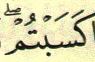 اكَسَبْتُمْ ۖ